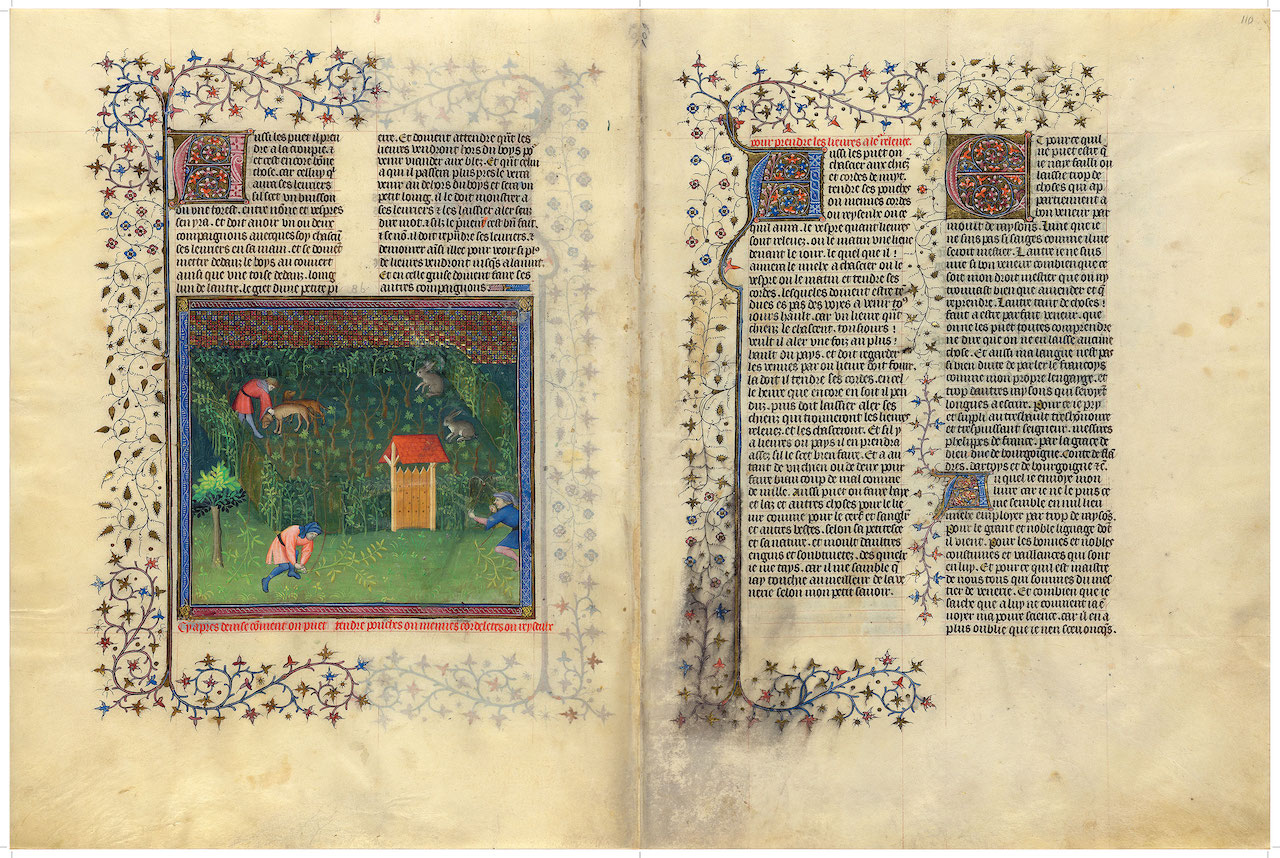 Aussi les puet il pren
dre a la croupie. et
et cest encore bone
chose. car celluy q̄
aura ses levriers
sil scet un buisson
ou une forest. entre none et vespres
sen yra. et doit avoir un ou deux
compaignons avecques soy chascū
ses levriers en sa main. et se doivēt
mettre dedanz le boys au couvert
ainsi que une toise dedanz. loing
lun de lautre. le giet dune petite pi
erre. Et doivent attendre que les
lievres vendront hors du boys po
venir viander aux blez. Et quāt celui
a qui il passera plus pres le verra
venir au dehors du boys et sera un
petit loing. il le doit monstrer a
ses levriers et les laissier aler sanz
dire mot. et silz le prēnēt cest biē fait.
et se nō. il doit reprēdre ses levriers. et
demourer aussi illec pour veoir si plꝰ
de lievres vendront jusq̄s a la nuit.
Et en celle guise doivent faire ses
autres compaignons.
Cy apres devise cōment on puet tendre pouches ou menues cordeletes ou reyseux
110
pour prendre les lievres a la relevee.
Aussi les puet on
chascier aux chiēs
et cordes de nuyt.
tendre ses pouches
ou menues cordes
ou reyseulx ou ce
quil aura. le vespre quant lievres
sont relevez. ou le matin une lieue
devant le jour. le quel que il
aimera le mielx a chascier ou le
vespre ou le matin et tendre ses
cordes. lesqueles doivent estre tē
dues es pas des voyes a venir tou
jours hault. car un lievre que
chiens le chascent. tousjours
veult il aler une foiz au plus
hault du pays. et doit regarder
les venues par ou lievre court.
la doit il tendre ses cordes. en cel
le heure que encore en soit il pen
duz. puis doit laissier aler ses
chiens qui trouveront les lievres
relevez. et les chasceront. Et sil y
a lievres ou pays il en prendra
assez. sil le scet bien faire. Et a au
tant de un chien ou de deux pour
faire biau coup de mal comme
de mille. Aussi puet on faire haye
et laz et autres choses pour le lie
vre comme pour le cerf et sangler
et autres bestes. selon sa petitesce
et sa nature. et moult daultres
engins et soubtivetez. des quielx
je me tays. car il me semble q̄
jay touchie au meilleur de la ve
nerie selon mon petit savoir.
Et pour ce quil
ne puet estre q̄
je naye failli ou
laissie trop de
choses qui ap
partienient a
bon veneur par
moult de raysons. Lune que je
ne suis pas si saiges comme il me
seroit mestier. Lautre je ne suis
mie si bon veneur combien que ce
soit mon droit mestier que on ny
trouvast bien que amender et q̄
reprendre. Lautre tant de choses
faut a estre parfait veneur. que
onne les puet toutes comprendre
ne dire que on ne en laisse aucune
chose. Et aussi ma langue nest pas
si bien duite de parler le francoys
comme mon propre lengaige. et
trop dautres raysons qui seroyēt
longues a escrire. Pour ce je pry
et supply au treshault treshonore
et trespuissant seigneur. messire
phelipes de france. par la grace de
dieu duc de bourgoigne. Conte de flā
dres. dartoys et de bourgoigne etc.
Au quel je envoye mon
livre car je ne le puis ce
me semble en nul lieu
mielx employer par trop de raysōs.
Pour le grant et noble lignage dōt
il vient. Pour les bonnes et nobles
coustumes et vaillances qui sont
en luy. Et pour ce quil est maistre
de nous tous qui sommes du mes
tier de venerie. Et combien que je
saiche que a luy ne convient ja ē
noyer ma pour science. car il en a
plus oublie que je nen sceu oncqs.